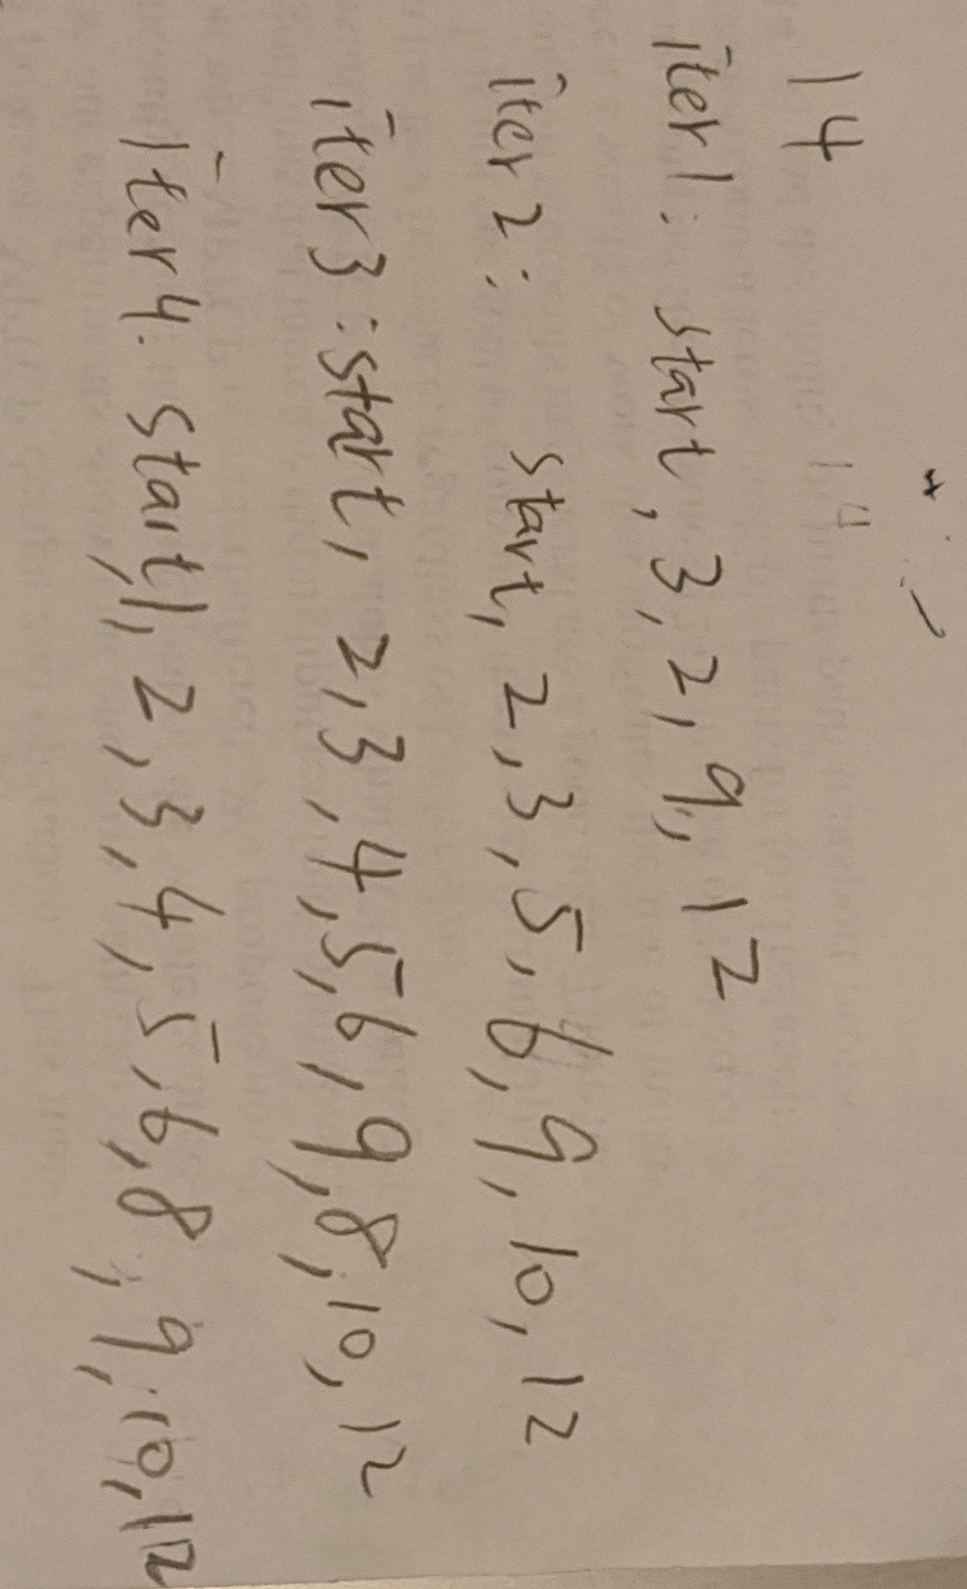 14
iter1: start, 3, 2, 9, 12
iter 2: start, 2, 3, 5, 6, 9, 10, 12
iter3: start, 2, 3, 4, 5, 6, 9, 8, 10, 12
iter4: start, 1, 2, 3, 4, 5, 6, 8, 9, 10, 12